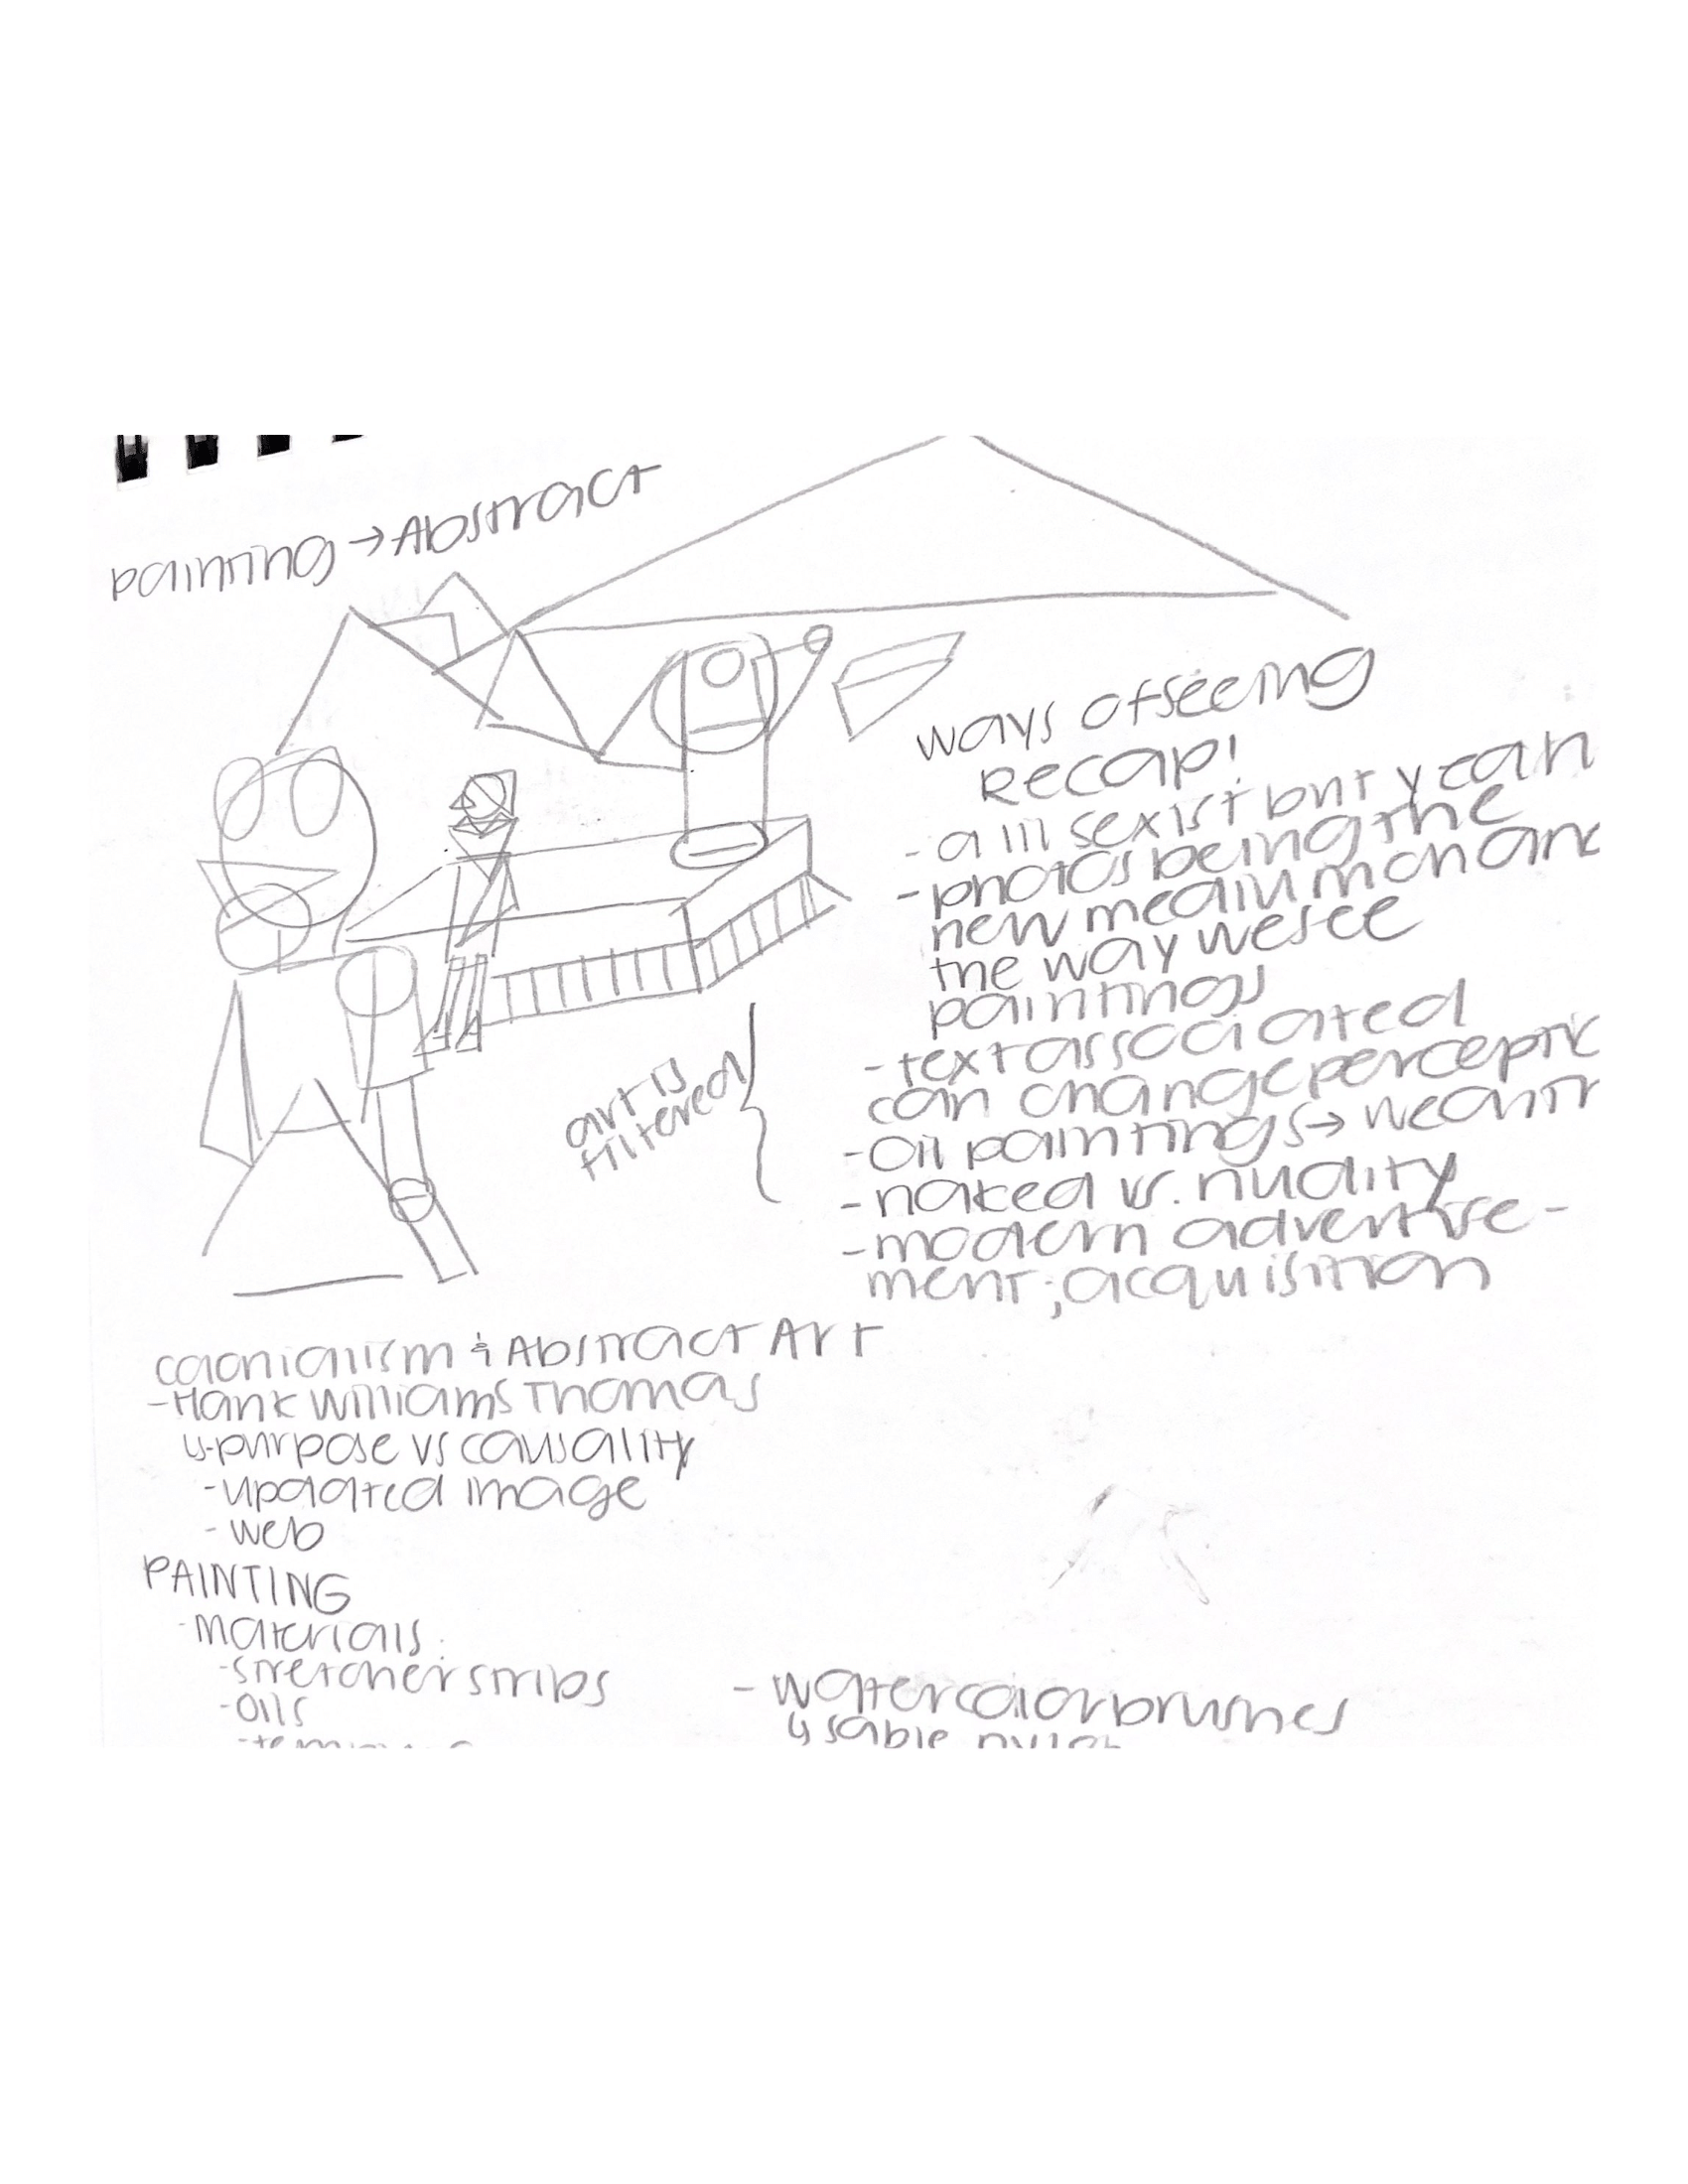 painting → Abstract
ways of seeing
Recap!
- a lil sexist but y
- photos being the
new medium
the way we see
paintings
- text associated
can change
- Oil paintings →
- naked vs. nudity
- modern advertise-
ment; acquisition
art is
filtered
Colonialism & Abstract Art
- Hank Williams Thomas
↳ purpose vs causality
- updated image
- web
PAINTING
- Materials:
- stretcher strips
- oils
- watercolor brushes
↳ sable